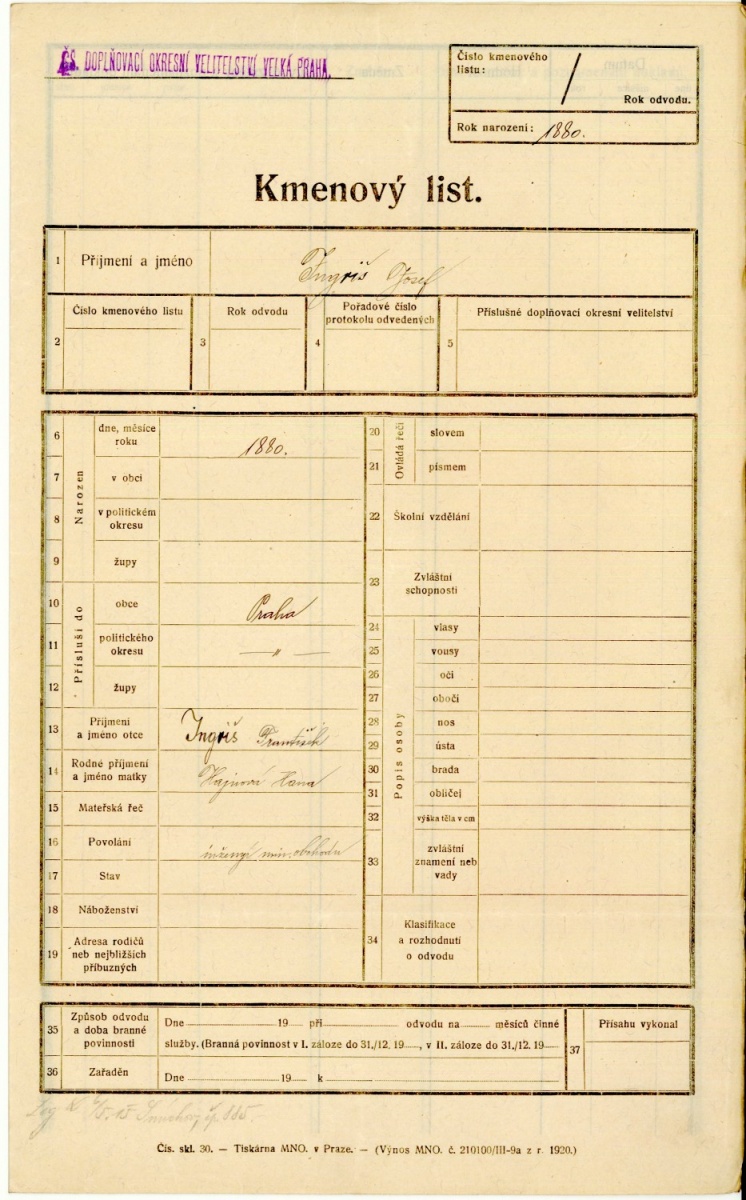 ČS. DOPLŇOVACÍ OKRESNÍ VELITELSTVÍ VELKÁ PRAHA.
Číslo kmenového
listu: /
Rok odvodu.
Rok narození: 1880.
Kmenový list.
1 Příjmení a jméno Ingriš Josef
2 Číslo kmenového listu
3 Rok odvodu
4 Pořadové číslo
protokolu odvedených
5 Příslušné doplňovací okresní velitelství
Narozen
6 dne, měsíce
roku 1880.
7 v obci
8 v politickém
okresu
9 župy
Přísluší do
10 obce Praha
11 politického
okresu — " —
12 župy
13 Příjmení
a jméno otce Ingriš František
14 Rodné příjmení
a jméno matky Hana
15 Mateřská řeč
16 Povolání min. obchodu
17 Stav
18 Náboženství
19 Adresa rodičů
neb nejbližších
příbuzných
Ovládá řeči
20 slovem
21 písmem
22 Školní vzdělání
23 Zvláštní
schopnosti
Popis osoby
24 vlasy
25 vousy
26 oči
27 obočí
28 nos
29 ústa
30 brada
31 obličej
32 výška těla v cm
33 zvláštní
znamení neb
vady
34 Klasifikace
a rozhodnutí
o odvodu
35 Způsob odvodu
a doba branné
povinnosti
Dne 19 při odvodu na měsíců činné
služby. (Branná povinnost v I. záloze do 31./12. 19 , v II. záloze do 31./12. 19
36 Zařaděn
Dne 19 k
37 Přísahu vykonal
Čís. skl. 30. — Tiskárna MNO. v Praze. — (Výnos MNO. č. 210100/III-9a z r. 1920.)